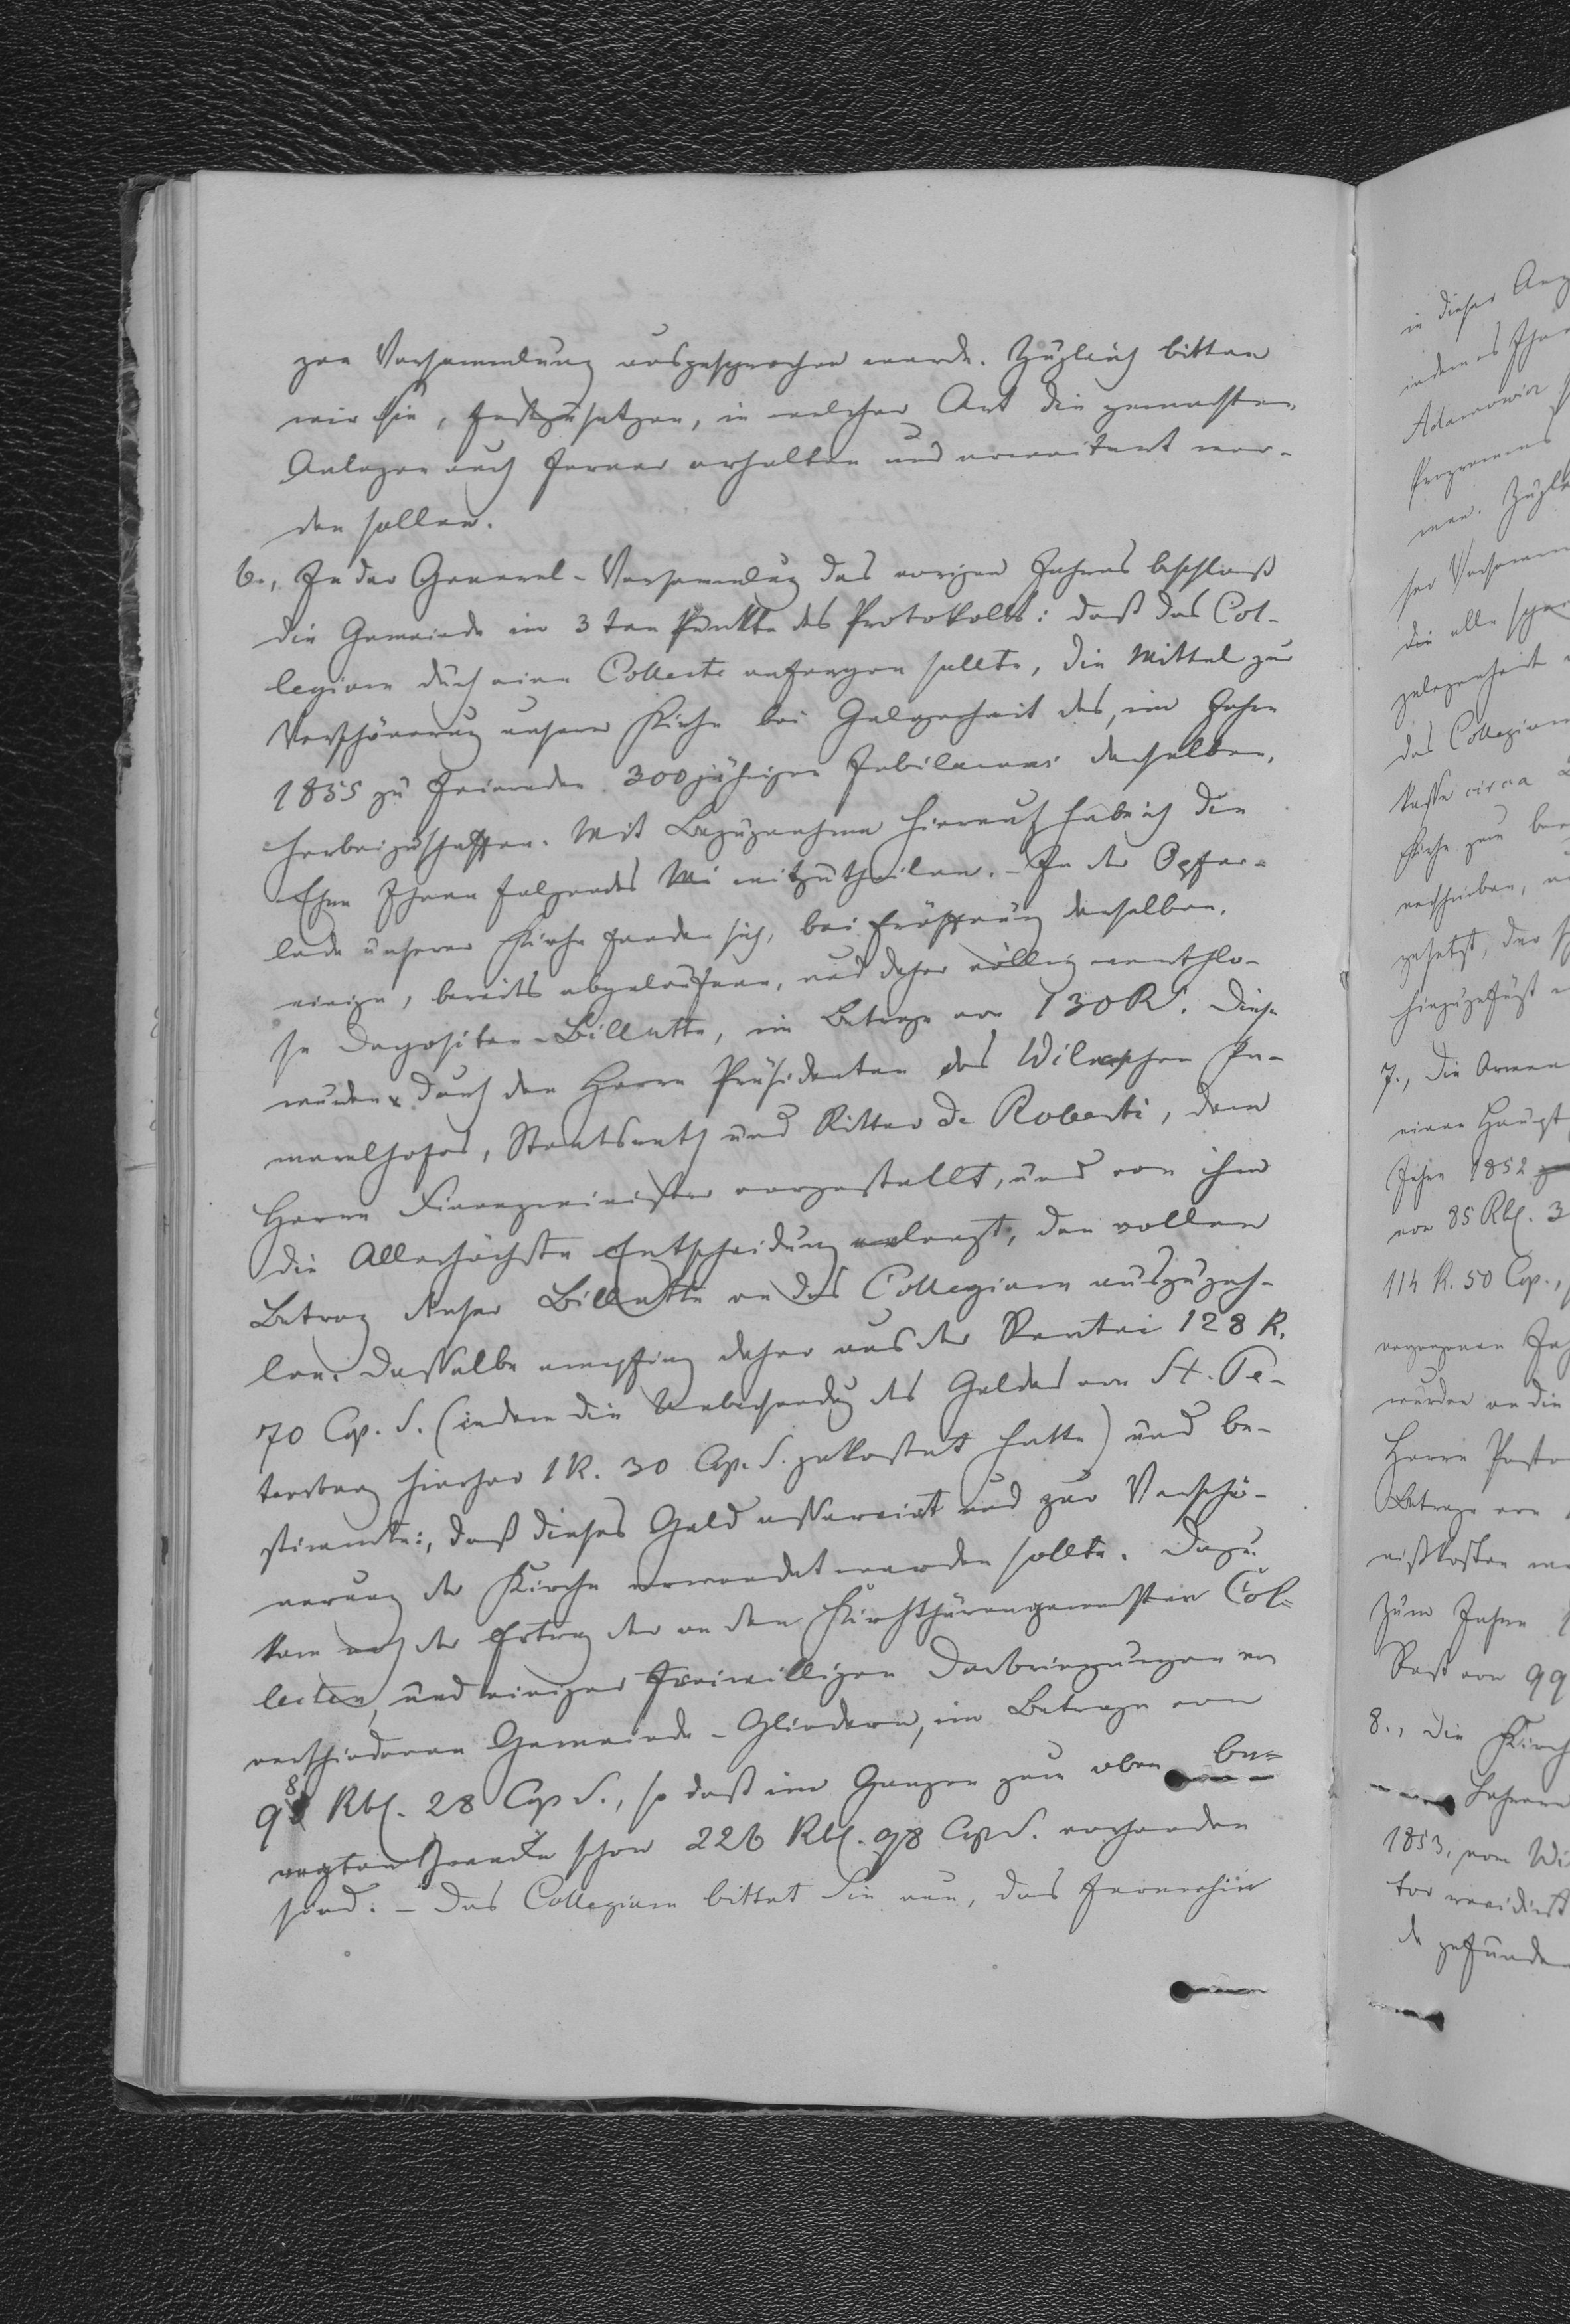 zen Versammlung ausgesprochen werde. Zugleich bitten
wir Sie, festzusetzen, in welcher Art die gemachten
Anlagen auch ferner erhalten und erweitert wer-
den sollen.
6., In der General-Versammlung des vorigen Jahres beschloß
die Gemeinde im 3ten Punkte des Protokolls: daß das Col-
legium durch eine Collecte anfangen sollte, die Mittel zur
Verschönerung unserer Kirche bei Gelegenheit des, im Jahre
1855 zu feiernden 300jährigen Jubilaeums derselben,
herbeizuschaffen. Mit Bezugnahme hierauf habe ich die
Ehre Ihnen folgendes mitzutheilen. – In der Opfer-
lade unserer Kirche fanden sich, bei Eröffnung derselben,
einige, bereits abgelaufene, und daher völlig werthlo-
se Depositen-Billette, im Betrage von 130 R. Diese
wurden durch den Herrn Präsidenten des Wilnaschen Ka-
meralhofes, Staatsrath und Ritter de Roberti, dem
Herrn Finanzminister vorgestellt, und von ihm
die Allerhöchste Entscheidung erlangt, den vollen
Betrag dieser Billette an das Collegium auszuzah-
len. Dasselbe empfing daher aus der Rentei 128 R.
70 Cop. S. (indem die Uebersendung des Geldes von St. Pe-
tersburg hierher 1 R. 30 Cop. S. gekostet hatte) und be-
stimmte:, daß dieses Geld asservirt und zur Verschö-
nerung der Kirche verwendet werden sollte. Dazu
kam noch der Ertrag der an den Kirchthüren gemachten Col-
lecten, und einiger freiwilligen Darbringungen von
verschiedenen Gemeinde-Gliedern, im Betrage von
98 Rbl. 28 Cop S., so daß im Ganzen zum oben be-
regten Zwecke schon 226 Rbl. 98 Cop S. vorhanden
sind. – Das Collegium bittet Sie nun, das fernerhin
in dieser
indem es
Adamowicz
Programms
men.
ser
die alle
gelegenheit
das Collegium
Kasse circa
Kirche zum
verschieben,
gesetzt, der
hinzugefügt
7., Die Armen
einen Haupt
Jahre 1852
von 85 Rbl. 3
114 R. 50 Cop.,
vergangenen
wurden an die
Herrn Pastor
Betrage von
nißkosten
Zum Jahre
Rest von 99
8., Die Kirch
Lehrer
1853, vom
tor revidirt
de gefunden